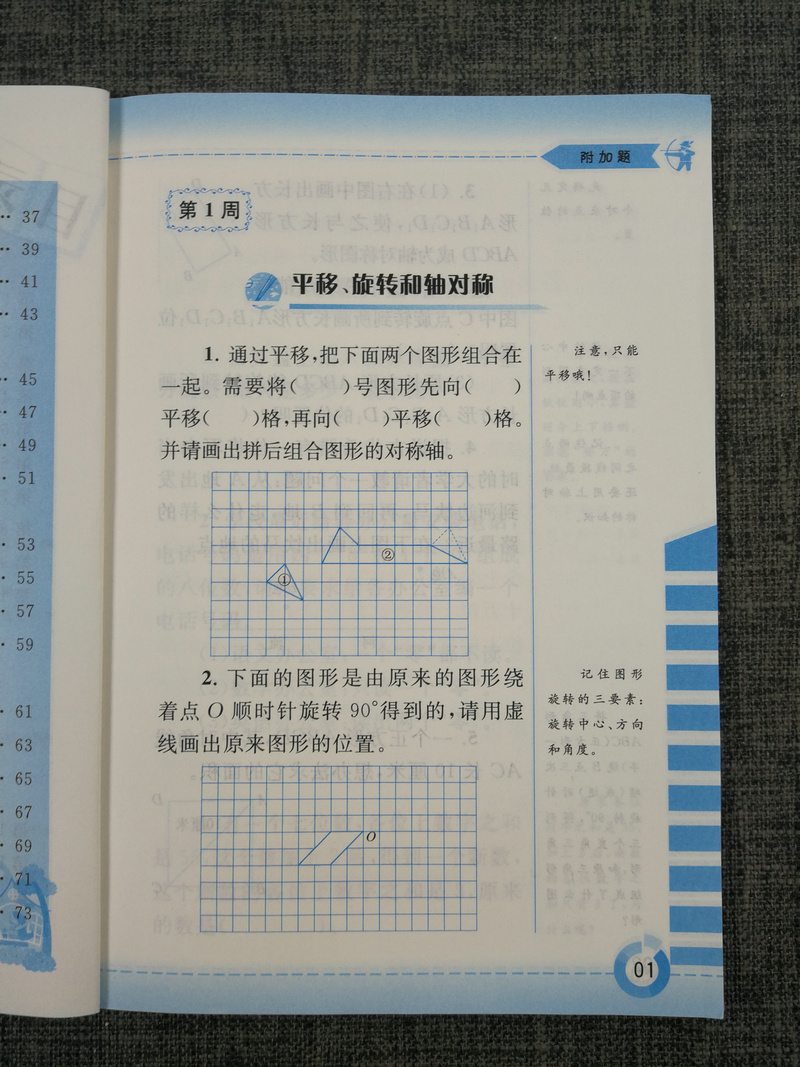 37
39
41
43
45
47
49
51
53
55
57
59
61
63
65
67
69
71
73
附加题
第1周
平移、旋转和轴对称
1. 通过平移,把下面两个图形组合在
一起。需要将(　　)号图形先向(　　)
平移(　　)格,再向(　　)平移(　　)格。
并请画出拼后组合图形的对称轴。
注意,只能
平移哦!
①
②
2. 下面的图形是由原来的图形绕
着点 O 顺时针旋转 90°得到的,请用虚
线画出原来图形的位置。
记住图形
旋转的三要素:
旋转中心、方向
和角度。
O
01